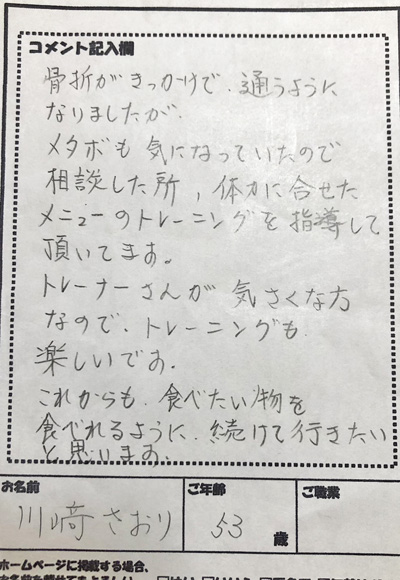 コメント記入欄
骨折がきっかけで、通うように
なりましたが、
メタボも気になっていたので
相談した所、体力に合せた
メニューのトレーニングを指導して
頂いてます。
トレーナーさんが気さくな方
なので、トレーニングも
楽しいです。
これからも、食べたい物を
食べれるように、続けて行きたい
と思います。
お名前
川﨑さおり
ご年齢
53歳
ご職業
ホームページに掲載する場合、